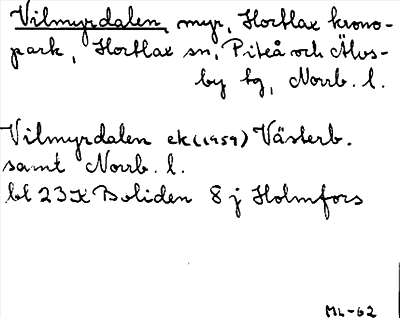 Vilmyrdalen, myr, Hortlax krono-
park, Hortlax sn, Piteå och Älvs-
by tg, Norrb. l.
Vilmyrdalen ek (1959) Västerb.
samt Norrb. l.
bl 23K Boliden 8 j Holmfors
ML-62